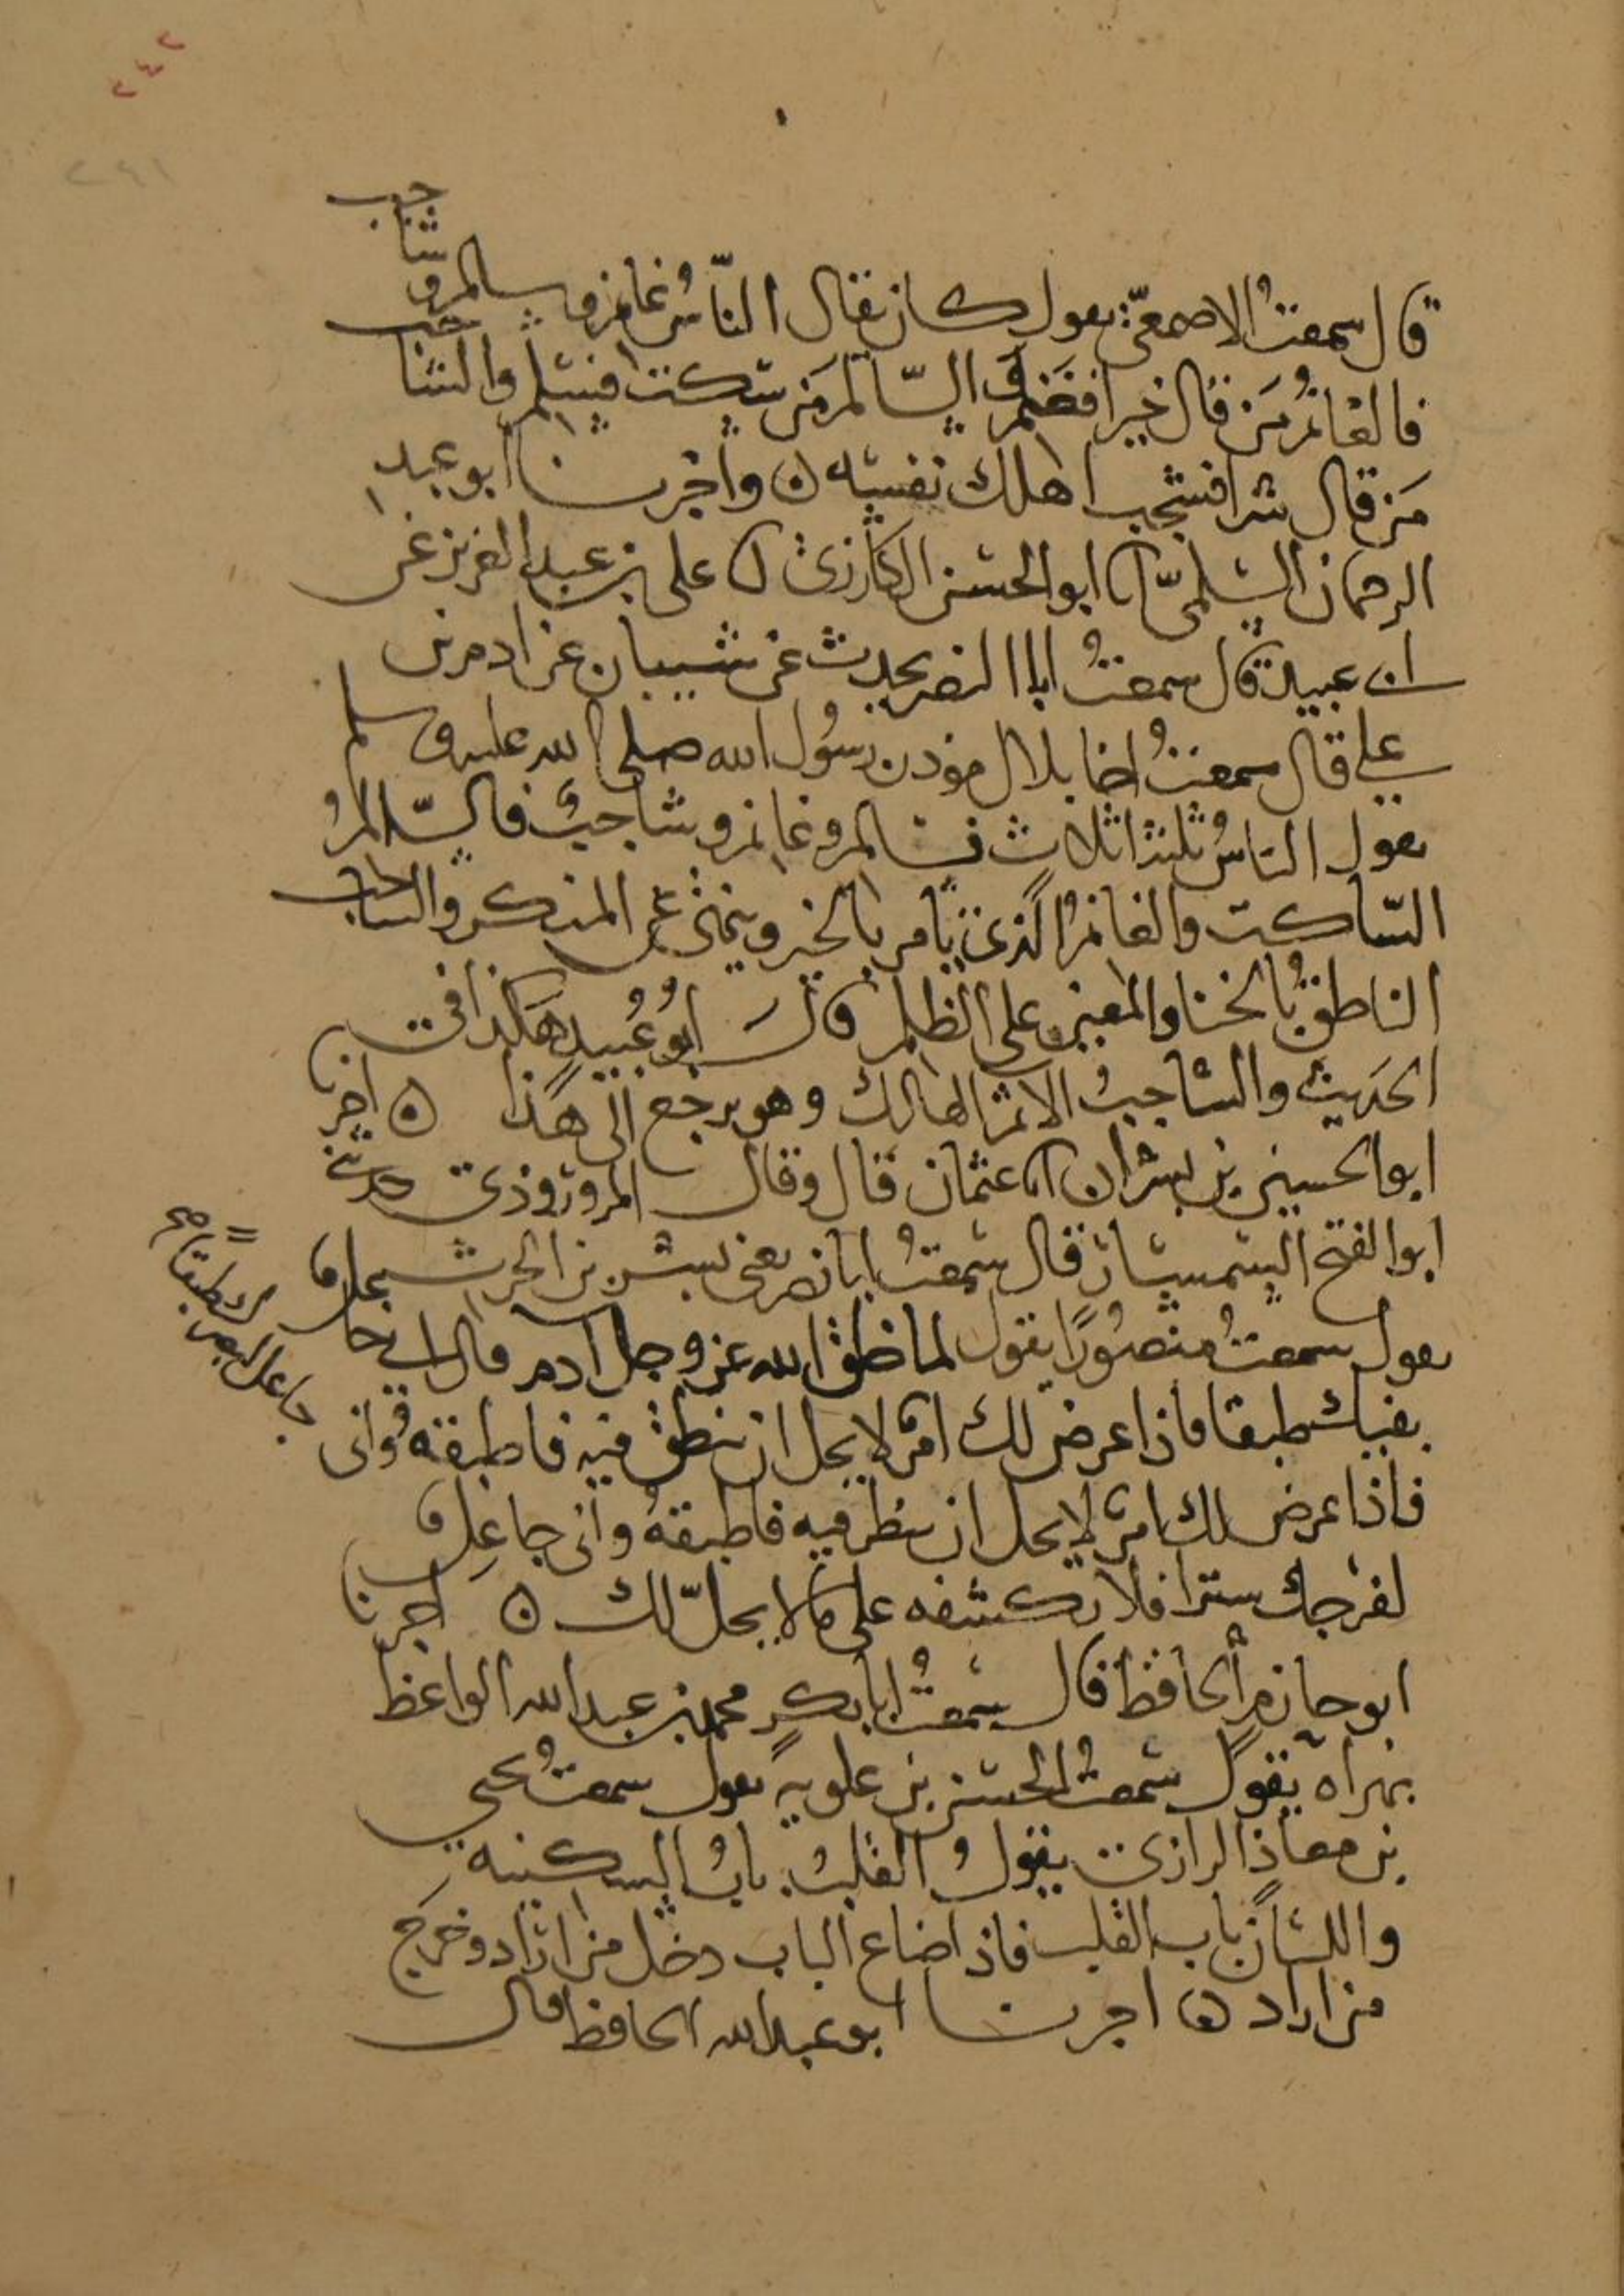 ٢٤٢
٢٤١
قال سمعتُ الاصمعيّ يقول كان يقال الناسُ غانم وسالم وشاجب
فالغانمُ مَن قال خيرا فغنم والسّالم مَن سكت فسلم والشاجب
مَن قال شرا فشجب اهلك نفسه ٥ واخبرنا ابو عبد
الرحمان السلميّ انا ابو الحسن الكارزي انا علي بن عبد العزيز عن
ابي عبيد قال سمعتُ ابا النضر يحدث عن شيبان عن ادم بن
علي قال سمعتُ اخا بلال موذن رسُول الله صلى الله عليه وسلم
يقول الناسُ ثلثة اثلاث فسالم وغانم وشاجبُ فالسّالمُ
السّاكت والغانمُ الذي يأمر بالخير وينهى عن المنكر والشاجب
الناطقُ بالخنا والمعين على الظلم قال أبُو عُبيد هكذا في
الحديث والشاجبُ الاثم الهالك وهو يرجع الى هذا ٥ اخبرنا
ابو الحسين بن بشران انا عثمان قال وقال المروروذي حدثني
ابو الفتح السمسار قال سمعتُ ابا نصر يعني بشر بن الحرث
يقول سمعتُ منصُورًا يقول لما خلق الله عز وجل ادم قال اني جاعل
لفيك طبقا فاذا عرض لك امر لا يحل ان تنطق فيه فاطبقه واني
جاعل لبصرك طبقا صح
فاذا عرض لك امر لا يحل ان تنظر فيه فاطبقهُ واني جاعل
لفرجك سترا فلا تكشفه على ما لا يحلّ لك ٥ اخبرنا
ابو حازم الحافظ قال سمعتُ ابا بكر محمد بن عبد الله الواعظ
بهراه يقول سمعتُ الحسن بن علويه يقول سمعتُ يحيى
بن معاذ الرازي يقول القلبُ بابُ السكينه
واللسان باب القلب فاذا ضاع الباب دخل من اراد وخرَج
من اراد ٥ اخبرنا ابو عبد الله الحافظ قال